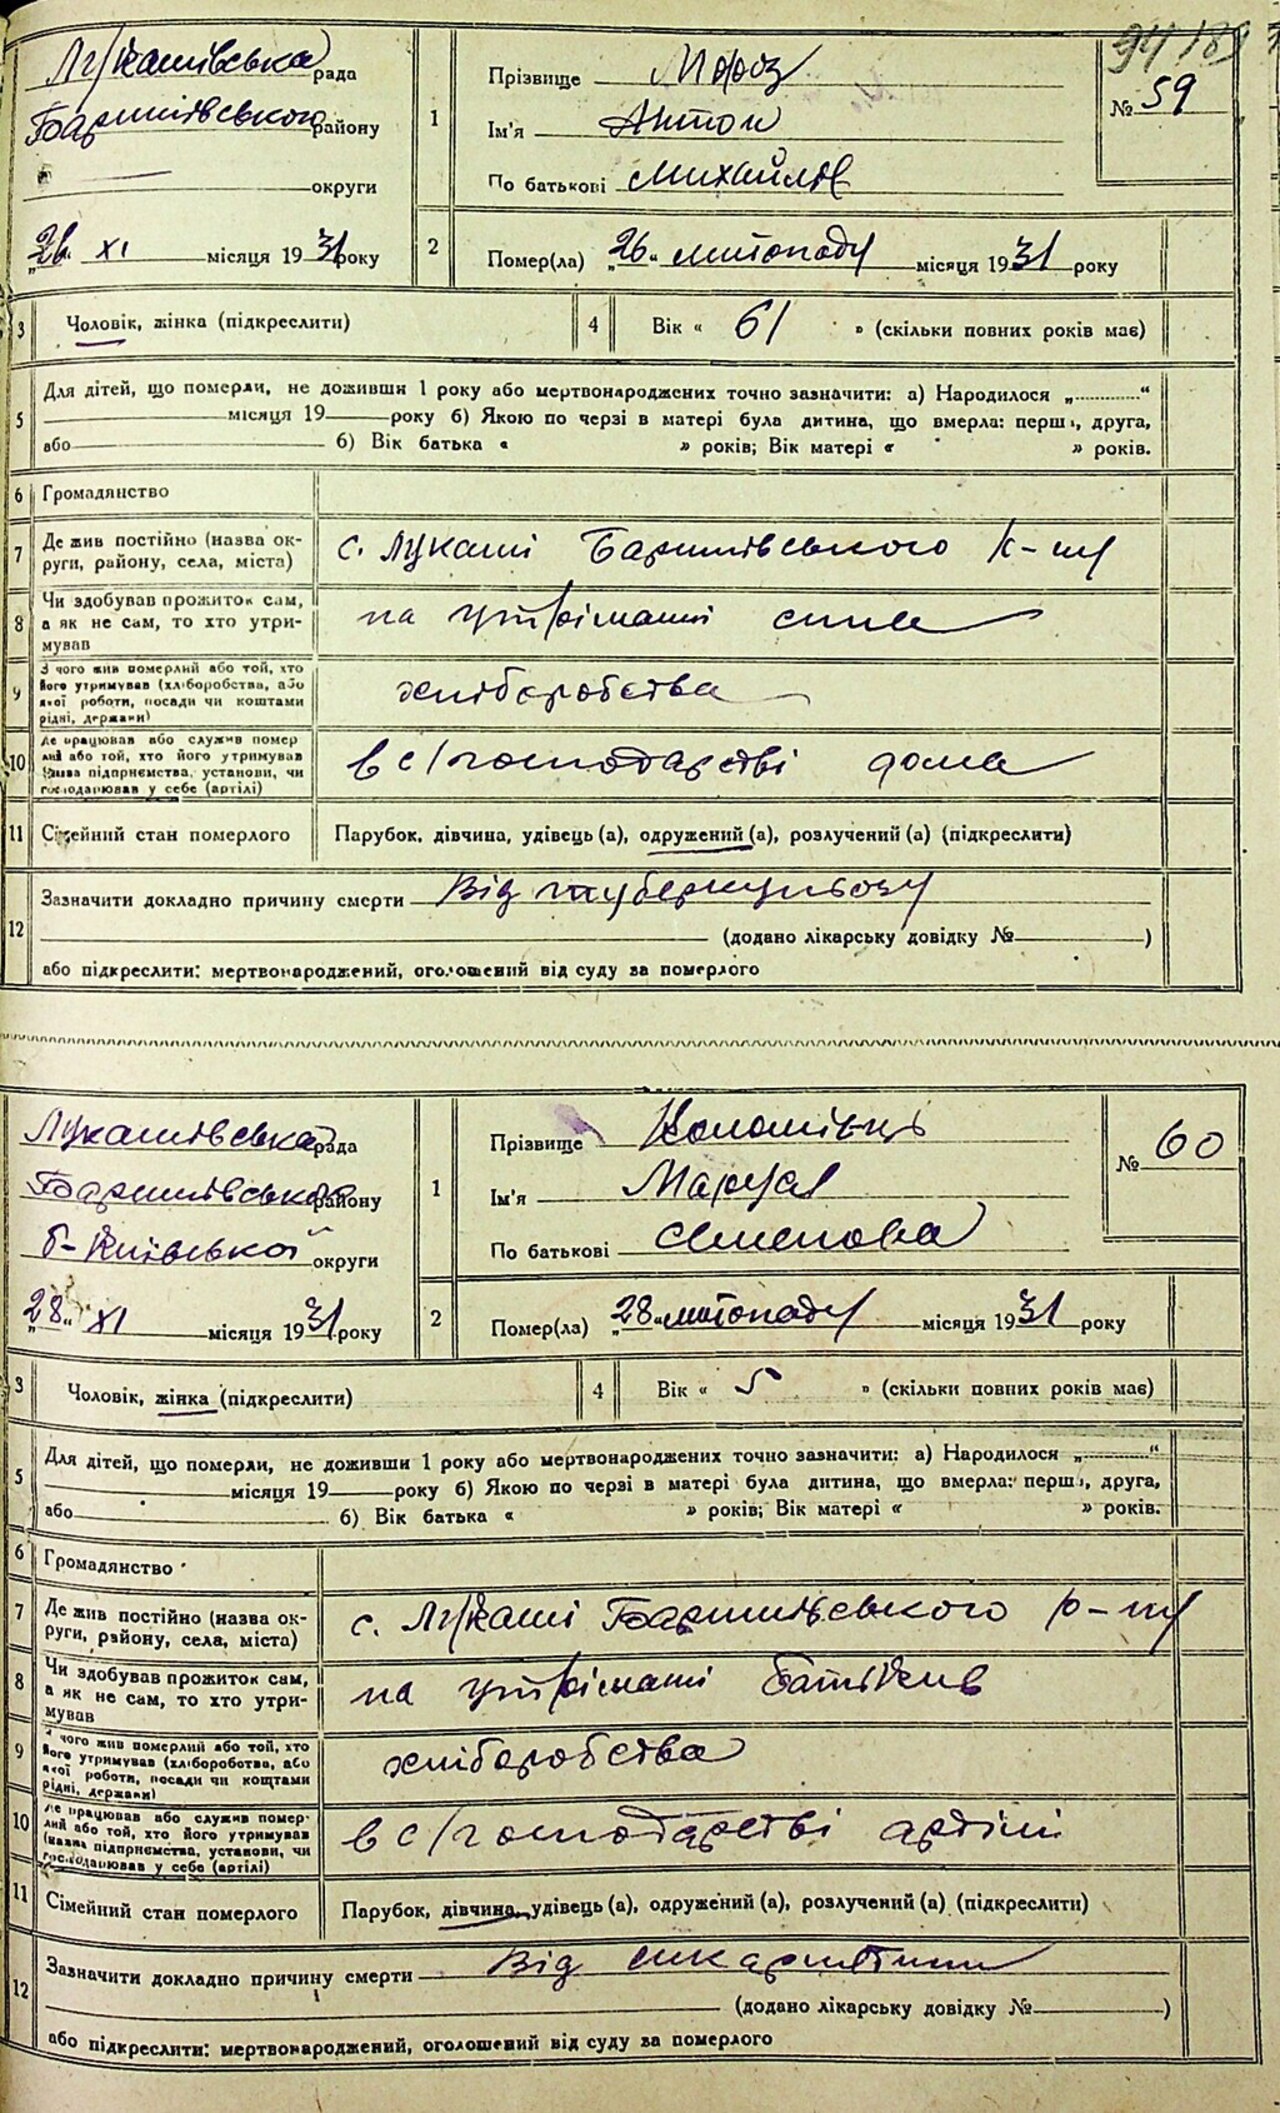 94 189
Лукашівська рада
Баришівського району
округи
„26“ XI місяця 1931 року
1
Прізвище Мороз
Ім'я Антон
По батькові Михайлів
№ 59
2
Помер(ла) „26“ листопаду місяця 1931 року
3 Чоловік, жінка (підкреслити)
4 Вік « 61 » (скільки повних років має)
5 Для дітей, що померли, не доживши 1 року або мертвонароджених точно зазначити: а) Народилося „ “
місяця 19 року б) Якою по черзі в матері була дитина, що вмерла: перша, друга,
або б) Вік батька « » років; Вік матері « » років.
6 Громадянство
7 Де жив постійно (назва ок-
руги, району, села, міста)
с. Лукаші Баришівського р-ну
8 Чи здобував прожиток сам,
а як не сам, то хто утри-
мував
на утріманні сина
9 З чого жив померлий або той, хто
його утримував (хліборобства, або
якої роботи, посади чи коштами
рідні, держави)
хліборобства
10 Де працював або служив помер
лий або той, хто його утримував
(назва підприємства, установи, чи
господарював у себе (артілі)
в с/господарстві дома
11 Сімейний стан померлого
Парубок, дівчина, удівець (а), одружений (а), розлучений (а) (підкреслити)
12 Зазначити докладно причину смерти Від туберкульозу
(додано лікарську довідку № )
або підкреслити: мертвонароджений, оголошений від суду за померлого
Лукашівська рада
Баришівського району
б-Київської округи
„28“ XI місяця 1931 року
1
Прізвище Коломієць
Ім'я Маруся
По батькові Семенова
№ 60
2
Помер(ла) „28“ листопаду місяця 1931 року
3 Чоловік, жінка (підкреслити)
4 Вік « 5 » (скільки повних років має)
5 Для дітей, що померли, не доживши 1 року або мертвонароджених точно зазначити: а) Народилося „ “
місяця 19 року б) Якою по черзі в матері була дитина, що вмерла: перша, друга,
або б) Вік батька « » років; Вік матері « » років.
6 Громадянство
7 Де жив постійно (назва ок-
руги, району, села, міста)
с. Лукаші Баришівського р-ну
8 Чи здобував прожиток сам,
а як не сам, то хто утри-
мував
на утріманні батьків
9 З чого жив померлий або той, хто
його утримував (хліборобства, або
якої роботи, посади чи коштами
рідні, держави)
хліборобства
10 Де працював або служив помер-
лий або той, хто його утримував
(назва підприємства, установи, чи
господарював у себе (артілі)
в с/господарстві артіли
11 Сімейний стан померлого
Парубок, дівчина, удівець (а), одружений (а), розлучений (а) (підкреслити)
12 Зазначити докладно причину смерти Від скарлятини
(додано лікарську довідку № )
або підкреслити: мертвонароджений, оголошений від суду за померлого